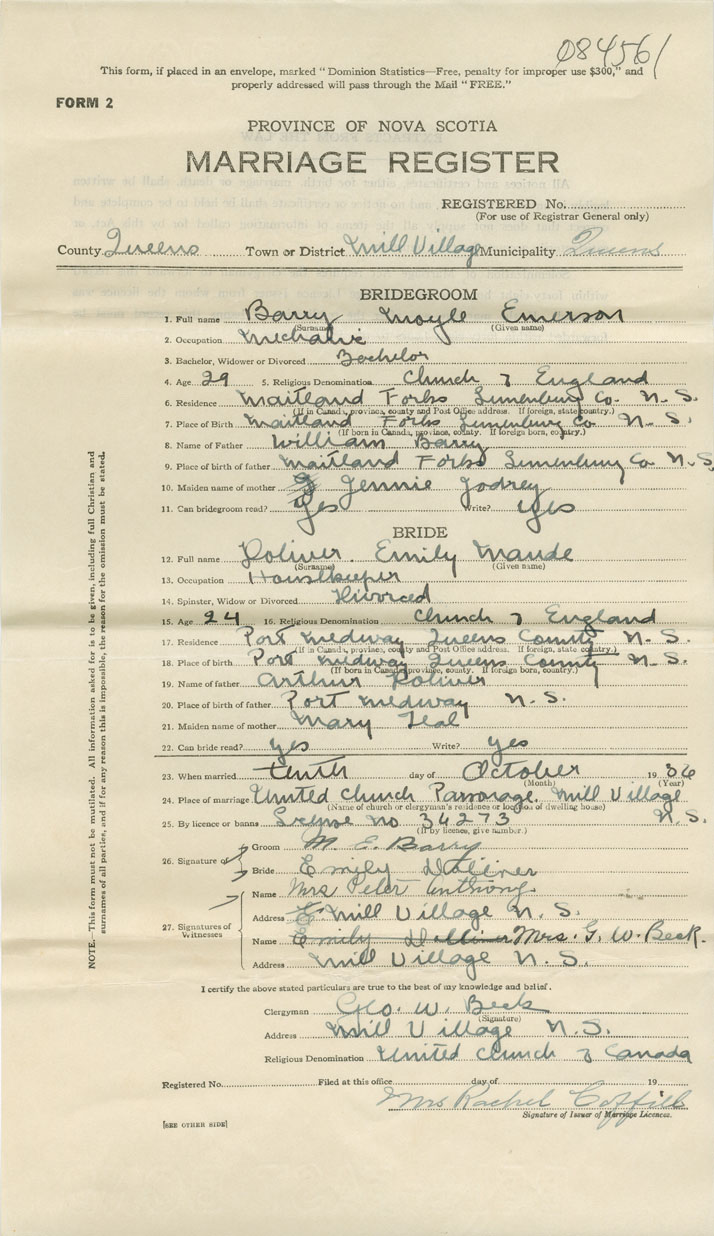 084561
This form, if placed in an envelope, marked "Dominion Statistics—Free, penalty for improper use $300," and
properly addressed will pass through the Mail "FREE."
FORM 2
PROVINCE OF NOVA SCOTIA
MARRIAGE REGISTER
REGISTERED No.
(For use of Registrar General only)
County Queens Town or District Mill Village Municipality Queens
BRIDEGROOM
1. Full name Barry Moyle Emerson
(Surname) (Given name)
2. Occupation Mechanic
3. Bachelor, Widower or Divorced Bachelor
4. Age 29 5. Religious Denomination Church of England
6. Residence Maitland Forks Lunenburg Co. N. S.
(If in Canada, province, county and Post Office address. If foreign, state country.)
7. Place of Birth Maitland Forks Lunenburg Co N. S.
(If born in Canada, province, county. If foreign born, country.)
8. Name of Father William Barry
9. Place of birth of father Maitland Forks Lunenburg Co. N. S.
10. Maiden name of mother Jennie Jodrey
11. Can bridegroom read? Yes Write? Yes
BRIDE
12. Full name Doliver Emily Maude
(Surname) (Given name)
13. Occupation Housekeeper
14. Spinster, Widow or Divorced Divorced
15. Age 24 16. Religious Denomination Church of England
17. Residence Port Medway Queens County N. S.
(If in Canada, province, county and Post Office address. If foreign, state country.)
18. Place of birth Port Medway Queens County N. S.
(If born in Canada, province, county. If foreign born, country.)
19. Name of father Arthur Doliver
20. Place of birth of father Port Medway N. S.
21. Maiden name of mother Mary Teal
22. Can bride read? yes Write? yes
23. When married tenth day of October 1936
(Month) (Year)
24. Place of marriage United Church Parsonage. Mill Village
(Name of church or clergyman's residence or location of dwelling house)
N. S.
25. By licence or banns License no 34273
(If by licence, give number.)
26. Signature of
Groom M. E. Barry
Bride Emily Dolliver
27. Signatures of Witnesses
Name Mrs Peter Anthony
Address Mill Village N. S.
Name Emily Dolliver Mrs. G. W. Beck.
Address Mill Village N. S.
I certify the above stated particulars are true to the best of my knowledge and belief.
Clergyman Geo. W. Beck
(Signature)
Address Mill Village N. S.
Religious Denomination United Church of Canada
Registered No. Filed at this office day of 19
Mrs Rachel Coffill
Signature of Issuer of Marriage Licences.
[SEE OTHER SIDE]
NOTE.—This form must not be mutilated. All information asked for is to be given, including full Christian and
surnames of all parties, and if for any reason this is impossible, the reason for the omission must be stated.